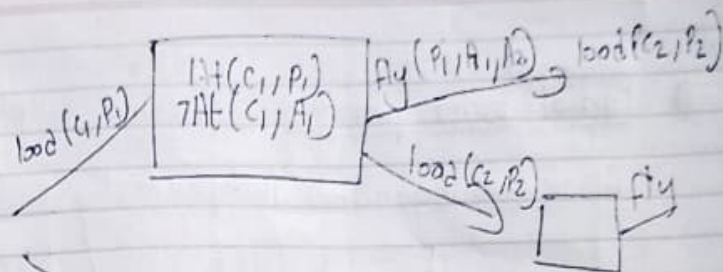 load(C1,P1)
At(C1,P1)
¬At(C1,A1)
fly(P1,A1,A2)
load(C2,P2)
load(C2,P2)
fly